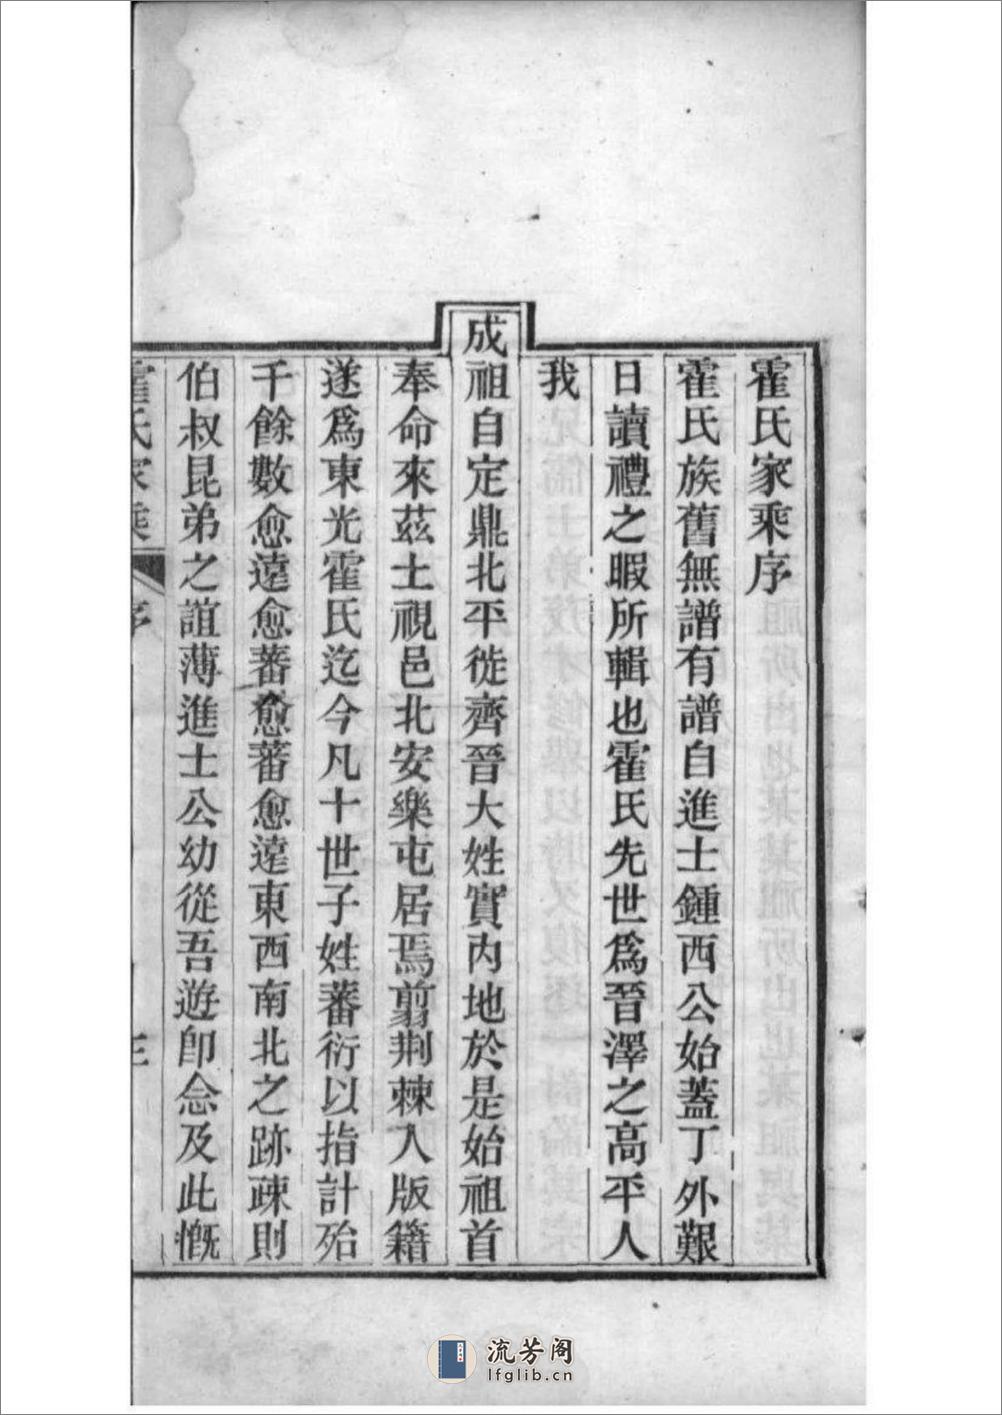 霍氏家乘序
霍氏族舊無譜有譜自進士鍾西公始蓋丁外艱
日讀禮之暇所輯也霍氏先世爲晉澤之高平人
我
成祖自定鼎北平徙齊晉大姓實内地於是始祖首
奉命來茲土視邑北安樂屯居焉翦荆棘入版籍
遂爲東光霍氏迄今凡十世子姓蕃衍以指計殆
千餘數愈遠愈蕃愈蕃愈遠東西南北之跡疎則
伯叔昆弟之誼薄進士公幼從吾遊卽念及此慨
霍氏家乘
序
三
流芳阁
lfglib.cn